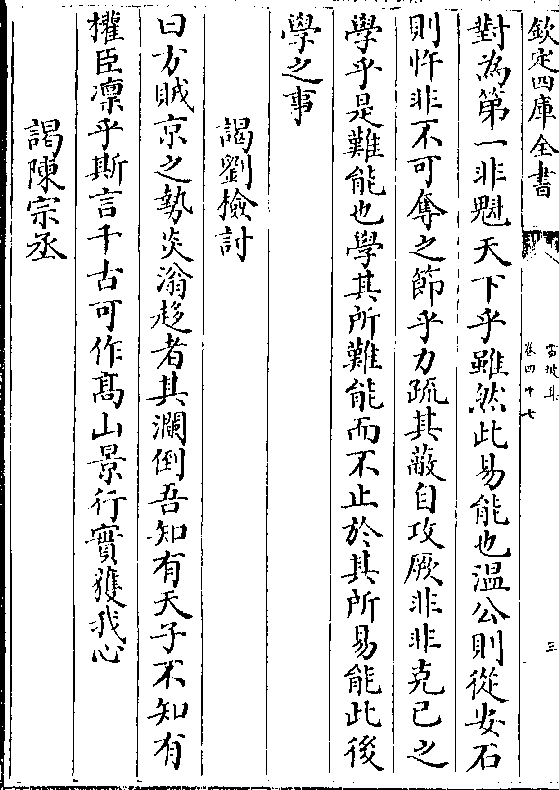 欽定四庫全書
雪坡集
卷四十七
三
對為第一非魁天下乎雖然此易能也溫公則從安石
則忤非不可奪之節乎力疏其蔽自攻厥非非克已之
學乎是難能也學其所難能而不止於其所易能此後
學之事
謁劉檢討
曰方賊京之勢炎滃趍者其瀾倒吾知有天子不知有
權臣凛乎斯言千古可作髙山景行實獲我心
謁陳宗丞